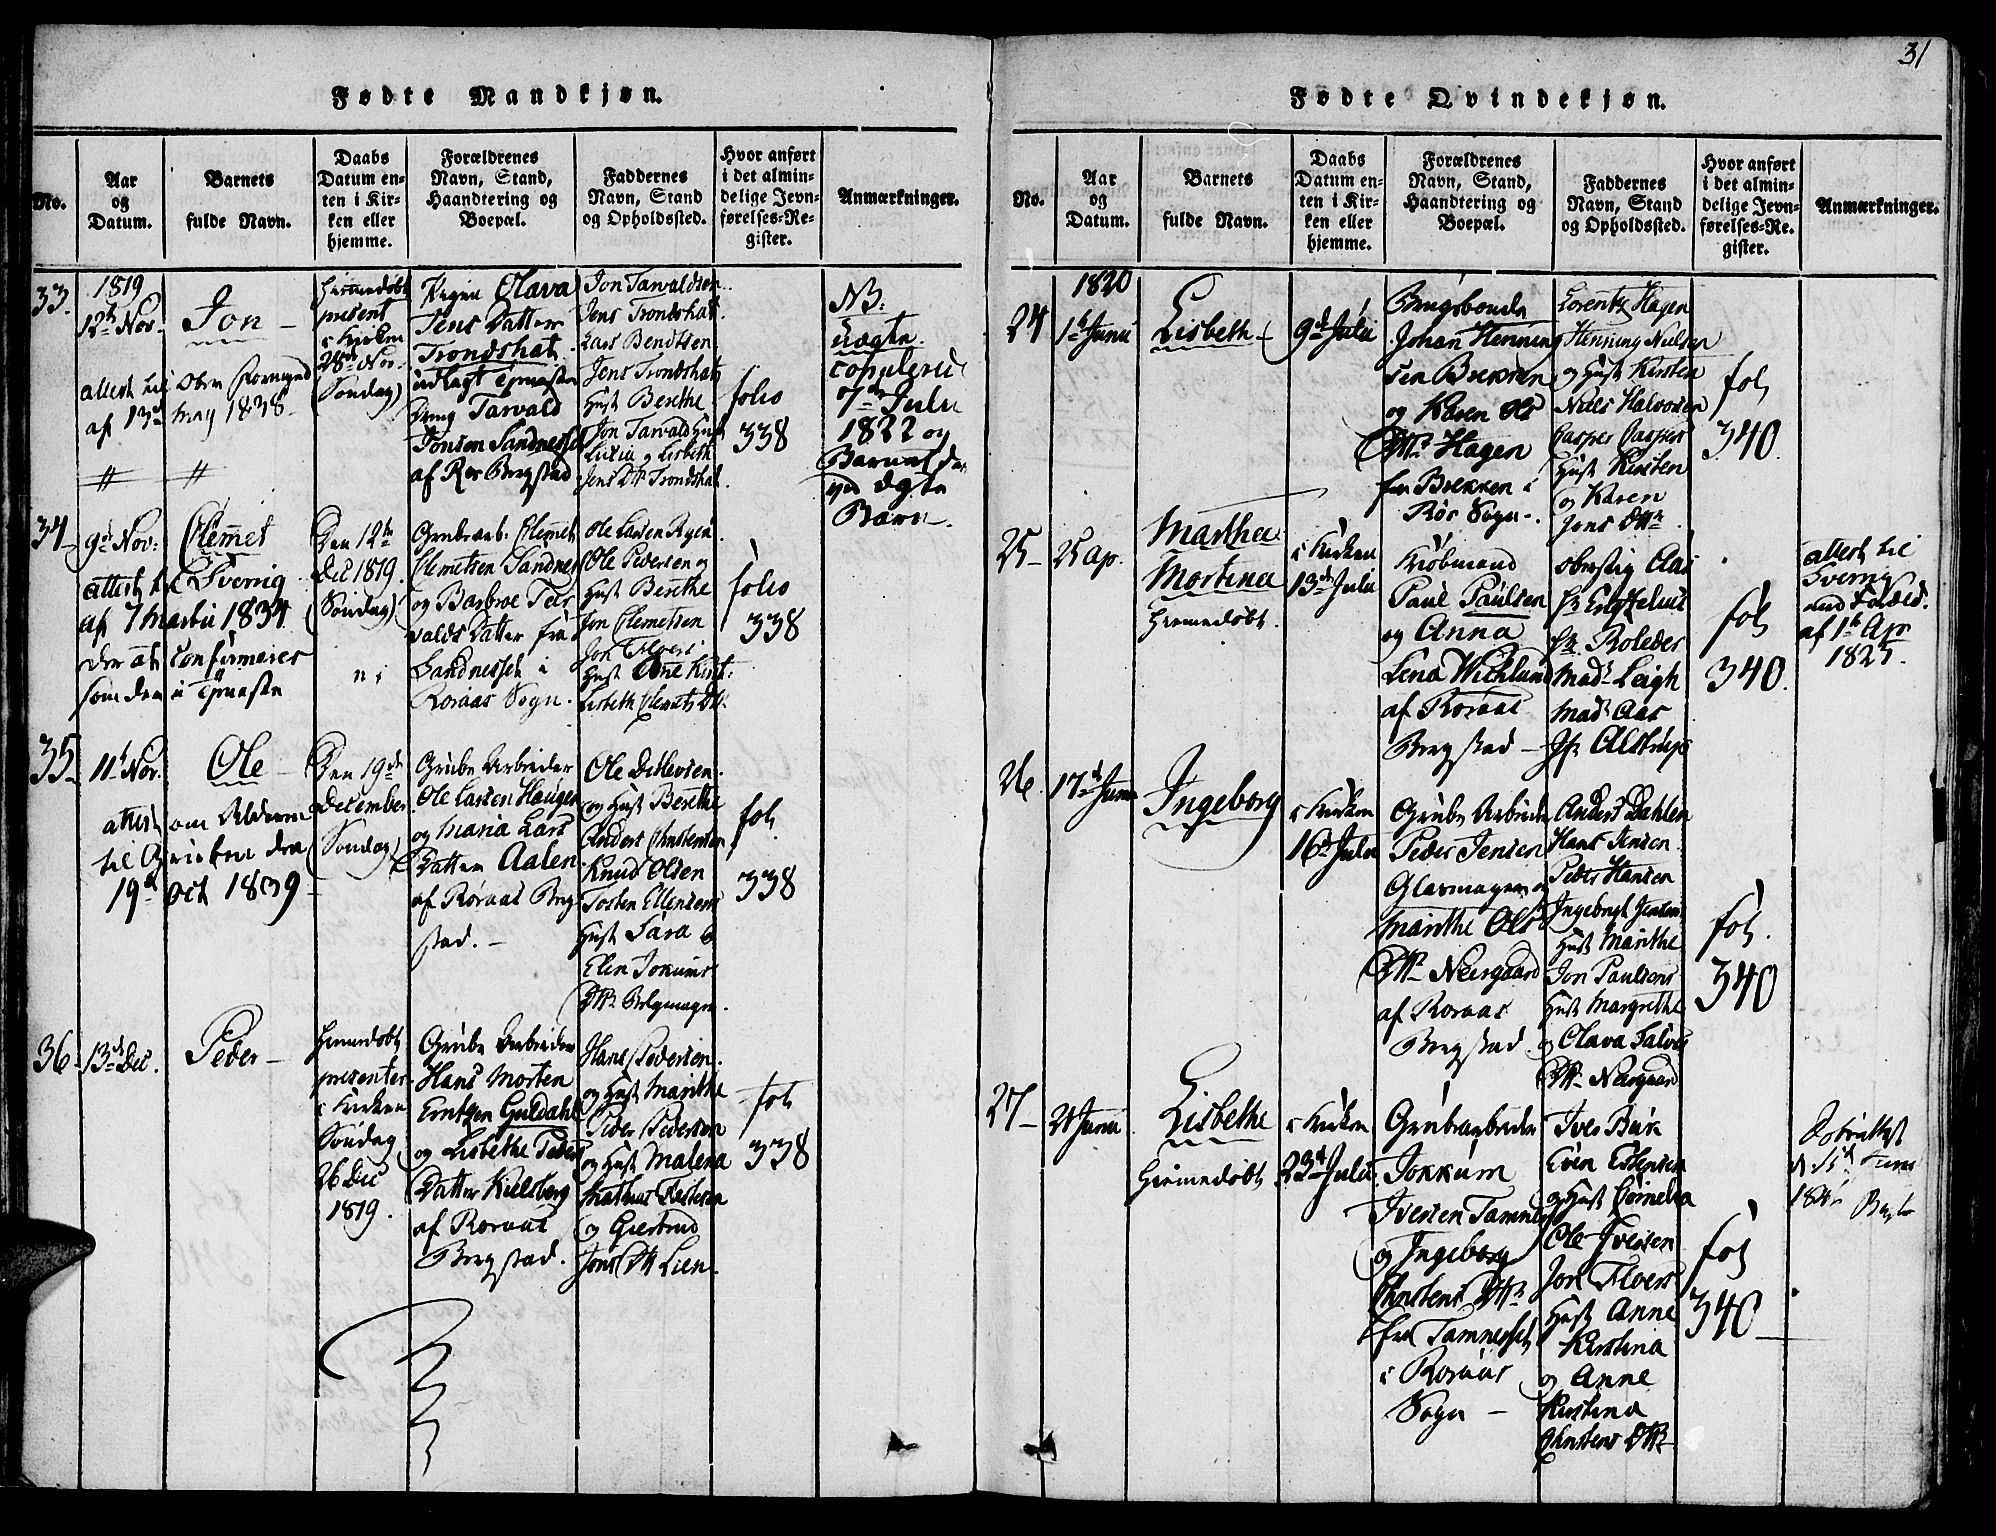 31
Fødte Mandkjøn.
No.
Aar
og
Datum.
Barnets
fulde Navn.
Daabs
Datum en-
ten i Kir-
ken eller
hjemme.
Forældrenes
Navn, Stand,
Haandtering og
Boepæl.
Faddernes
Navn, Stand
og Opholdssted.
Hvor anført
i det almin-
delige Jevn-
førelses-Re-
gister.
Anmærkninger.
33.
1819
12te Nov.
Jon
attest til
af 13de May 1838
Hiemmedøbt
present
i Kirken
28de Nov.
(Søndag)
Pigen Olava
Jens Datter
Trondshat
udlagt
Dreng Tarvald
Jonsen Sandnesset
af Rør Bergstad
Jon Tarvaldsen
Jens Trondshat
Lars Bendtsen
Jens Trondshat
Hust Berethe
Jon Tarvald Hust
Lucia og Lisbeth
Jens Dtr Trondshat
folio
338
NB:
Uægte
copulerede
7de Julii
1822 og
Barnet
ægte
Barn.
34
9de Nov:
Clemet
attest til Sverrig
af 7 Martii 1834
der at Confirmeres
som den i Tjeneste
Den 12te
Dec 1819.
(Søndag)
Grubearb. Clemet
Clemetsen Sandnes
og Barbroe Tar
valds Datter fra
Sandnesset i
Roraas Sogn.
Ole Larsen Ryen
Ole Pedersen og
Hust Berethe
Jon Clemetsen
Jon Floer
Hust Anne Kirst:
Lisbeth Clemets Dtr.
folio
338
35
11te Nov.
Ole
attest om Alderen
til Giften den
19de Oct 1839
Den 19de
December
(Søndag)
Grube Arbeider
Ole Larsen Haugen
og Maria Lars
Datter Aalen
af Røraas Berg
stad.
Ole Detlevsen
og Hust Berethe
Anders Christensen
Knud Olsen
Tosten Ellensens
Hust Sara &
Elen Jokums
Dtr Belgmager.
fol.
338
36
13de Dec.
Peder
Hiemmedøbt
presenter
i Kirken
Søndag
26 Dec
1819.
Grube Arbeider
Hans Morten
Erntzen Guldahl
og Lisbethe Peders
Datter Kielsberg
af Roraas
Bergstad.
Hans Pedersen
og Hust Marithe
Peder Pedersen
og Hust Malena
Mathias
og Giertrud
Jons Dtr Lien.
fol
338
Fødte Qvindekjøn.
No.
Aar
og
Datum.
Barnets
fulde Navn.
Daabs
Datum en-
ten i Kir-
ken eller
hjemme.
Forældrenes
Navn, Stand,
Haandtering og
Boepæl.
Faddernes
Navn, Stand
og Opholdssted.
Hvor anført
i det almin-
delige Jevn-
førelses-Re-
gister.
Anmærkninger.
24
1820
1te Junii
Lisbeth
9de Julii
Brugsbonde
Johan Henning
sen Brekken
og Karen Ols
Dtr Hagen
fra Brekken i
Rør Sogn.
Lorentz Hagen
Henning Nielsen
og Hust Kirsten
Niels Halvorsen
Casper Caspers
Hust Kirsten
og Karen
Jens Dtr
fol
340.
25
25 Ap.
Marthea
Mortina
Hiemmedøbt.
i Kirken
13de Julii
Kiøbmand
Paul Paulsen
og Anna
Lena Wichlund
af Roraas
Bergstad
Oberstig Aas
Hr
Hr
Mads Leigh
Mads Aas
Jfr Alstrup
fol
340.
attest til
Sverrig
af 1te Apr
1825.
26
17de Junii
Ingeborg
i Kirken
16de Julii
Grube Arbeider
Peder Jensen
Glasmager og
Marithe Ols
Dtr Neergaard
af Roraas
Bergstad
Anders Dahlen
Hans Jensen
Peder Hansen
Ingebrigt Jensens
Hust Marithe
Jon Paulsens
Hust Margrethe
og Olava Salves
Dtr Neergaard
fol.
340
27
21 Junii
Lisbethe
Hiemmedøbt
i Kirken
23de Julii
Grubearbeider
Jokkum
Iversen Tamnes
og Ingeborg
Christens Dtr
fra Tamnesset
i Roraas
Sogn
Iver Buk
Even Estensen
og Hust Cornelia
Ole Iversen
Jon Floers
Hust Anne
Kirstina
og Anne
Kirstina
Christens Dtr
fol
340